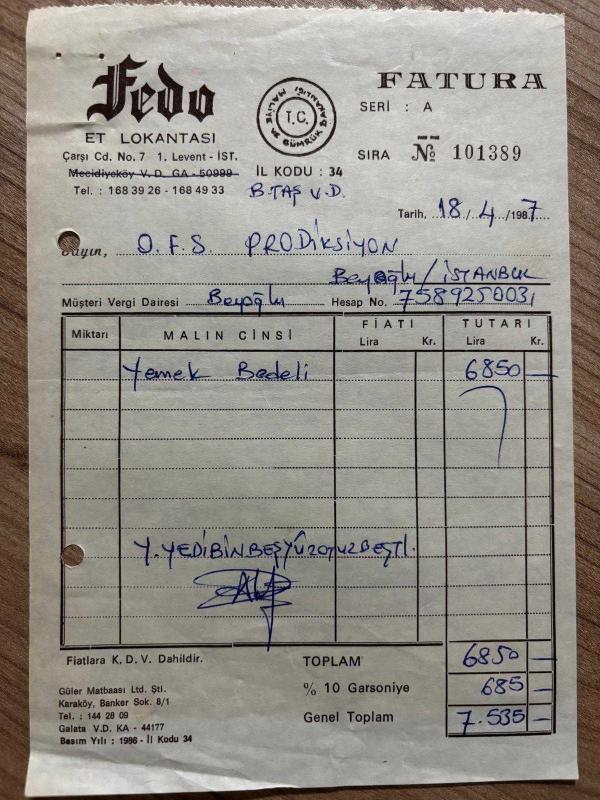 Fedo
ET LOKANTASI
Çarşı Cd. No. 7 1. Levent - İST.
Mecidiyeköy V. D. GA - 50999
Tel. : 168 39 26 - 168 49 33
T.C.
MALİYE VE GÜMRÜK BAKANLIĞI
İL KODU : 34
B.TAŞ V.D.
FATURA
SERİ : A
SIRA № 101389
Tarih, 18/4/1987
Sayın, O.F.S. PRODİKSİYON
Beyoğlu/İSTANBUL
Müşteri Vergi Dairesi Beyoğlu Hesap No. 7589250031
Miktarı MALIN CİNSİ FİATI TUTARI
Lira Kr. Lira Kr.
Yemek Bedeli 6850 —
Y. YEDİBİNBEŞYÜZOTUZBEŞTL.
Fiatlara K. D. V. Dahildir. TOPLAM 6850 —
% 10 Garsoniye 685 —
Genel Toplam 7.535 —
Güler Matbaası Ltd. Şti.
Karaköy, Banker Sok. 8/1
Tel. : 144 28 09
Galata V.D. KA - 44177
Basım Yılı : 1986 - İl Kodu 34